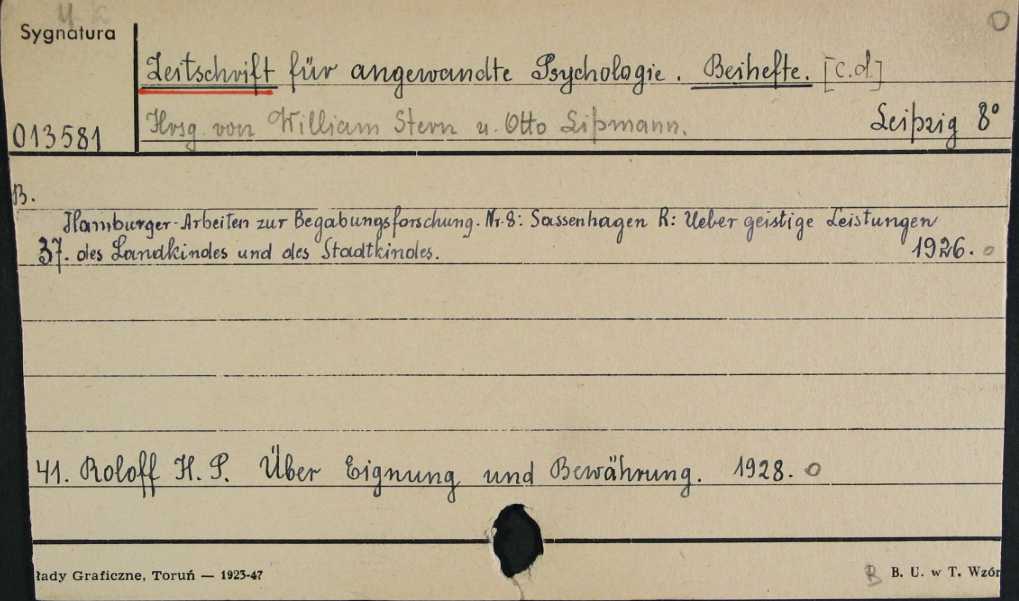 Sygnatura
Zeitschrift für angewandte Psychologie. Beihefte. [c.d.]
013581 Hrsg. von William Stern u. Otto Lipmann. Leipzig 8°
B.
Hamburger-Arbeiten zur Begabungsforschung. Nr. 8: Sassenhagen R: Ueber geistige Leistungen
37. des Landkindes und des Stadtkindes. 1926. o
41. Roloff H. P. Über Eignung und Bewährung. 1928. o
łady Graficzne, Toruń — 1923-47 B B. U. w T. Wzór